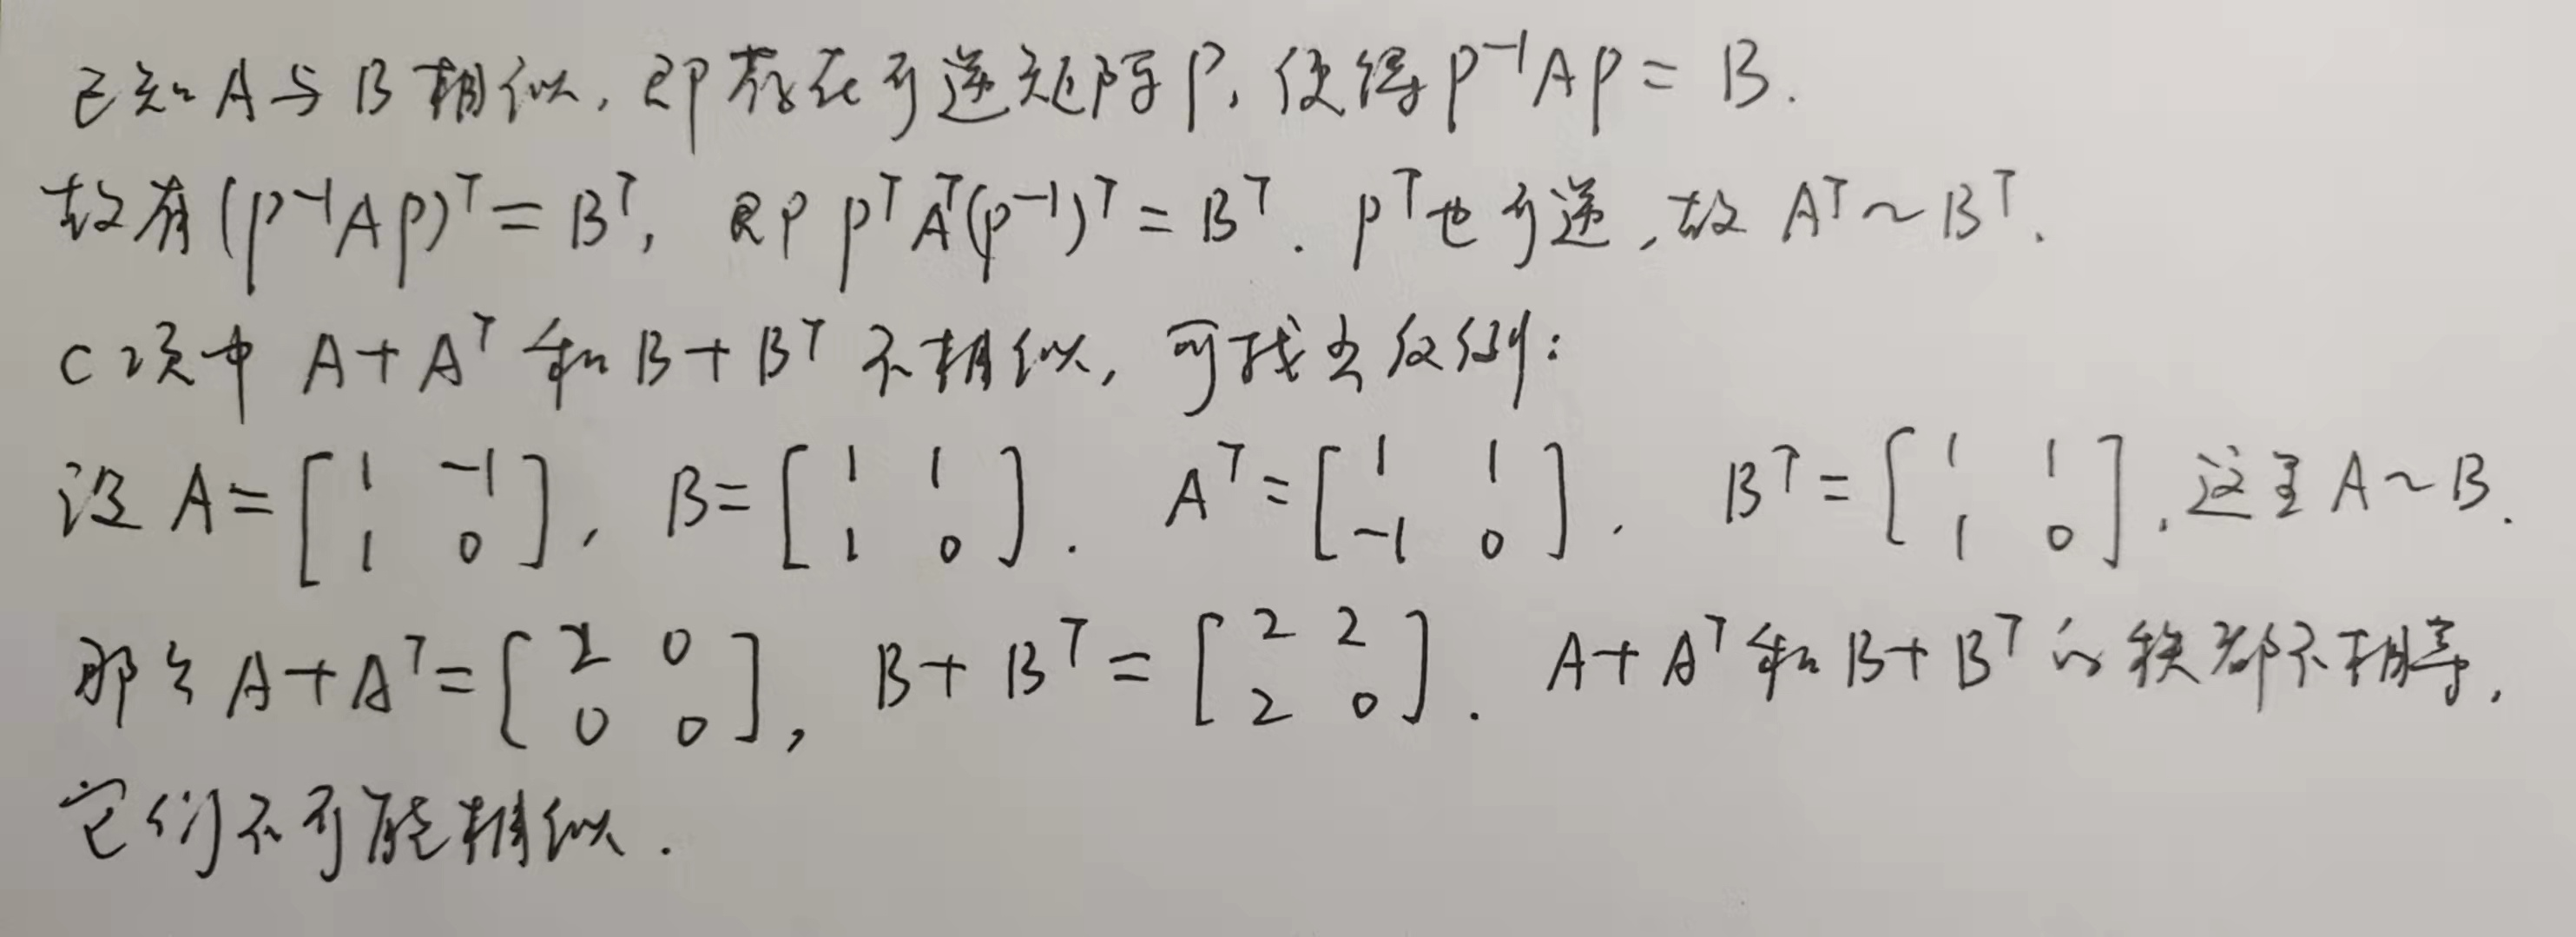 已知A与B相似,即存在可逆矩阵P,使得P⁻¹AP = B.
故有(P⁻¹AP)ᵀ = Bᵀ, 即 PᵀAᵀ(P⁻¹)ᵀ = Bᵀ. Pᵀ也可逆,故 Aᵀ~Bᵀ.
C项中 A+Aᵀ 和 B+Bᵀ 不相似,可找出反例:
设 A = [1 -1; 1 0], B = [1 1; 1 0]. Aᵀ = [1 1; -1 0], Bᵀ = [1 1; 1 0],这里 A~B.
那么 A+Aᵀ = [2 0; 0 0], B+Bᵀ = [2 2; 2 0]. A+Aᵀ 和 B+Bᵀ 的秩都不相等,
它们不可能相似.